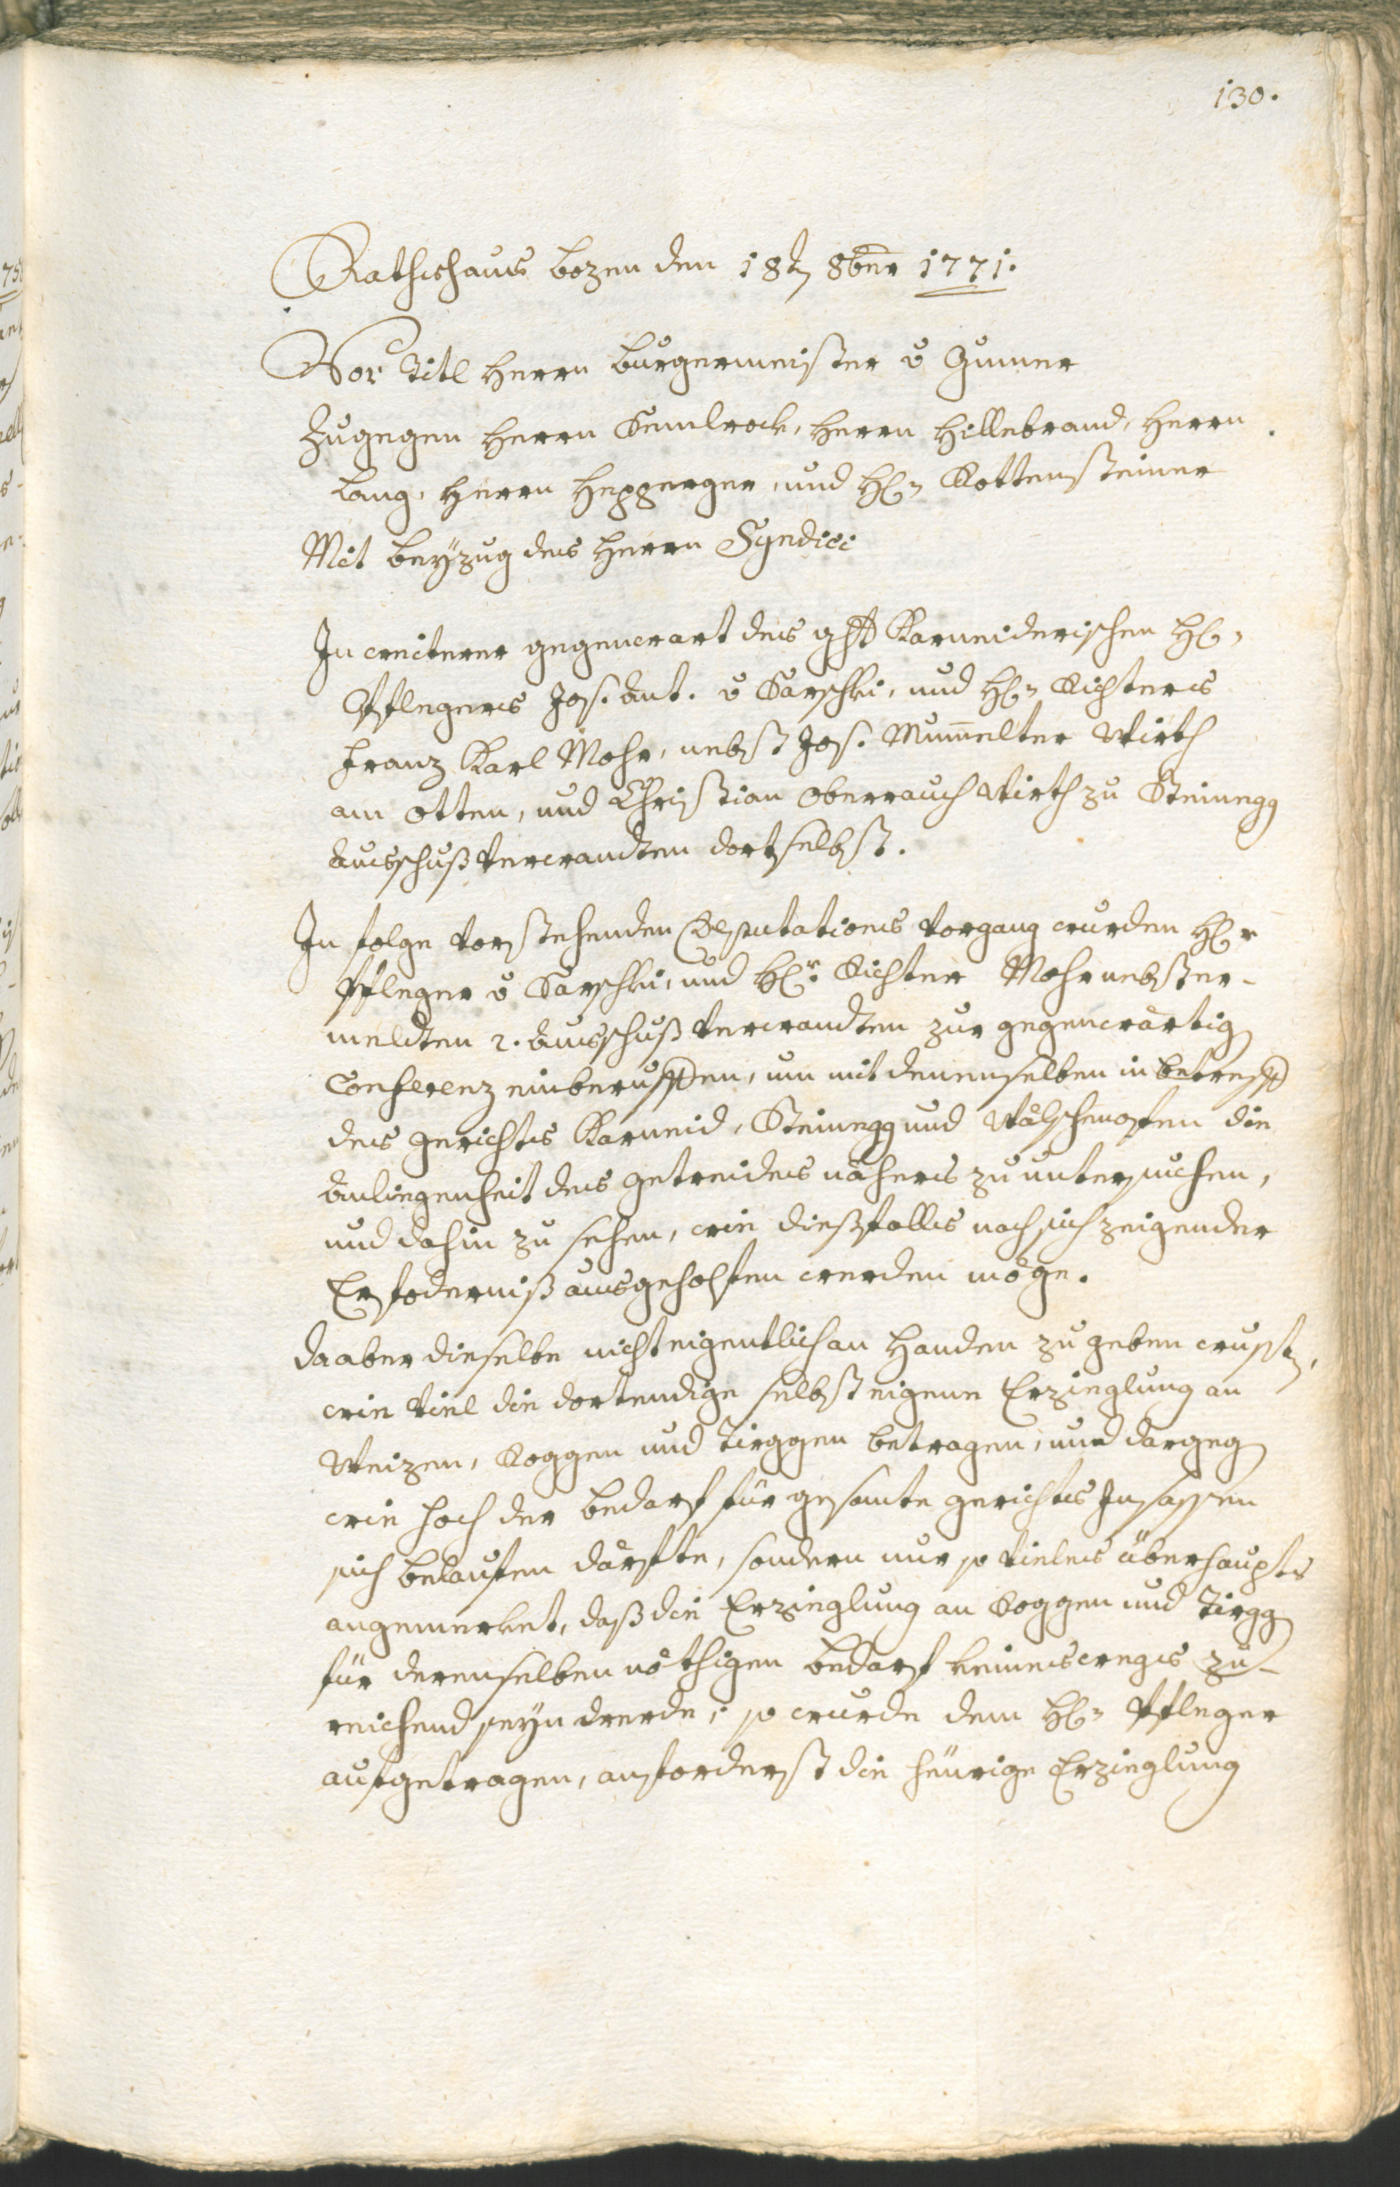 130.
Rathshaus Bozen den 18t 8ber 1771.
Vor Titl Herrn Burgermeister v Gumer
Zugegen Herrn Semlrock, Herrn Hillebrand, Herrn
Lang, Herrn Hepperger, und Hl: Rottensteiner
Mit beyzug des Herrn Syndici
In weiterer gegenwart des gsst Karneiderischen Hl:
Pflegers Jos. Ant. v Sarsthi, und Hl: Richters
Franz Karl Mohr, nebst Jos. Mum̅elter Wirth
am otten, und Christian Oberrauch Wirth zu Steinegg
Ausschuß Verwandten dortselbst.
In folge vorstehenden Deputations Vorgang wurden Hl:r
Pfleger v Sarsthi, und Hl:r Richter Mohr nebst er-
meldten 2. Ausschuß Verwandten zur gegenwärtig
Conferenz einberuffen, um mit denenselben in betreff
des gerichts Karneid, Steinegg und Wälschenofen die
Anliegenheit des getreides nähers zu untersuchen,
und dahin zu sehen, wie diesfalls nach sich zeigender
Erfoderniß ausgeholfen werden möge.
Da aber dieselbe nicht eigentlich an Handen zu geben wusst,
wie viel die dortendige selbst eigene Erzieglung an
Weizen, Roggen und Türggen betragen, und dargeg
wie hoch der bedarf für gesamte gerichts Insassen
sich belaufen därfte, sondern nur so vieles überhaupts
angemerket, daß die Erzieglung an Roggen und Türgg
für derenselben nöthigen bedarf keineswegs zu-
reichend seyn werde; so wurde dem Hl: Pfleger
aufgetragen, anforderst die heurige Erzieglung